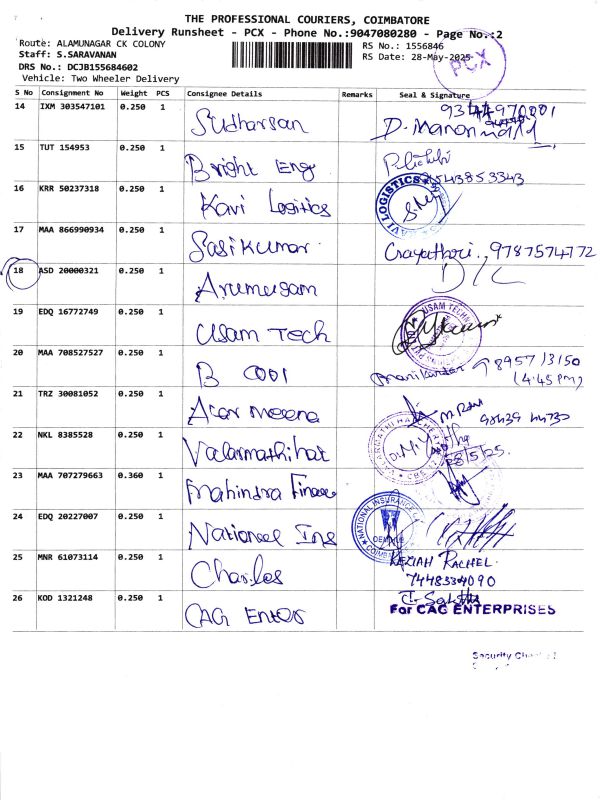 THE PROFESSIONAL COURIERS, COIMBATORE
Delivery Runsheet - PCX - Phone No.:9047080280 - Page No.:2
Route: ALAMUNAGAR CK COLONY
RS No.: 1556846
Staff: S.SARAVANAN
RS Date: 28-May-2025
PCX
DRS No.: DCJB155684602
Vehicle: Two Wheeler Delivery
S No Consignment No Weight PCS Consignee Details Remarks Seal & Signature
14 IXM 303547101 0.250 1 Sudharsan
15 TUT 154953 0.250 1 Bright Engg
16 KRR 50237318 0.250 1 Kavi Logitics
KAVI LOGISTICS
17 MAA 866990934 0.250 1 Sasikumar Gayathori., 9787574772
18 ASD 20000321 0.250 1 Arumugam D/L
19 EDQ 16772749 0.250 1 Usam Tech
20 MAA 708527527 0.250 1 B COOl
(4:45 PM)
21 TRZ 30081052 0.250 1
22 NKL 8385528 0.250 1 Valarmathi hat
28/5/25.
23 MAA 707279663 0.360 1 Mahindra Finance
24 EDQ 20227007 0.250 1 National Ins
NATIONAL INSURANCE
25 MNR 61073114 0.250 1 Charles KEZIAH RACHEL.
26 KOD 1321248 0.250 1 CAG Enter
For CAG ENTERPRISES